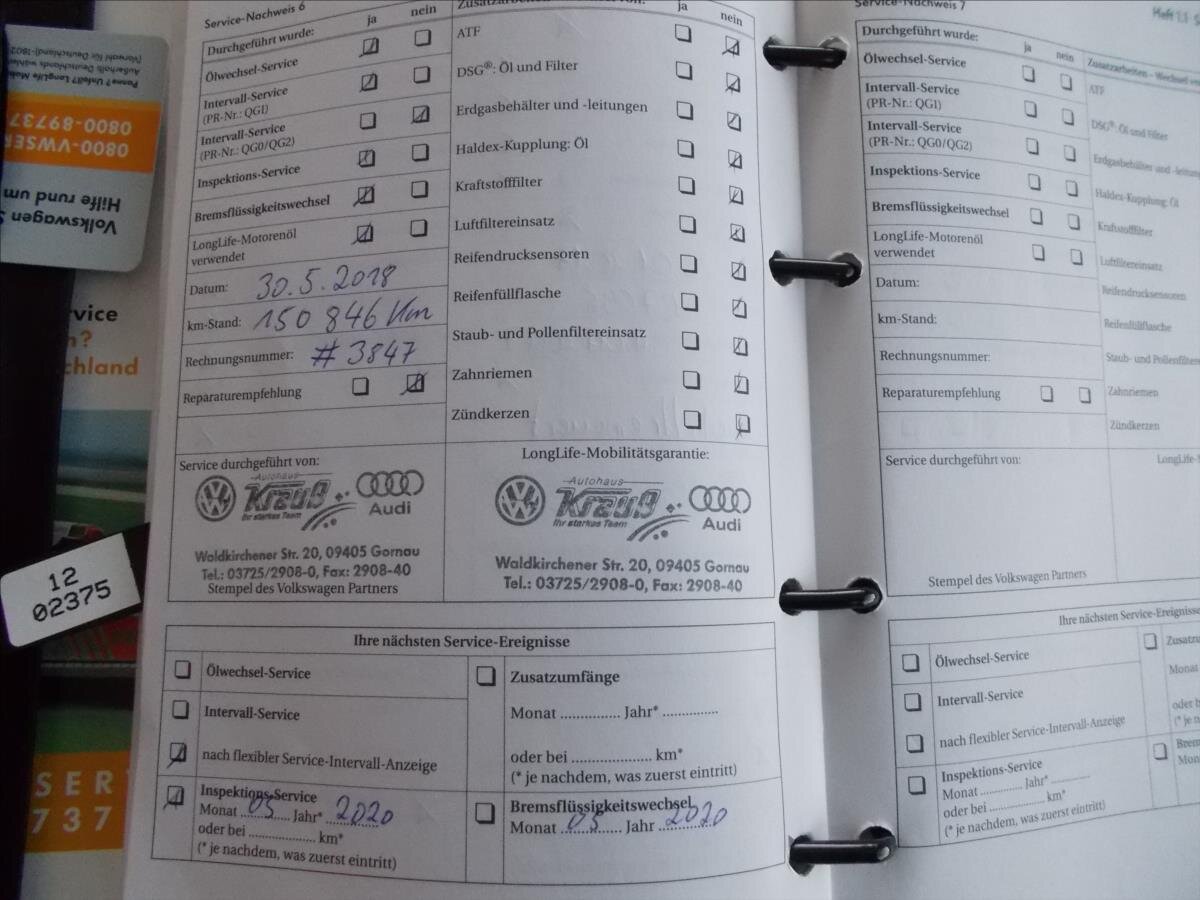 Service-Nachweis 6
Durchgeführt wurde:
ja
nein
Ölwechsel-Service
Intervall-Service
(PR-Nr.: QG1)
Intervall-Service
(PR-Nr.: QG0/QG2)
Inspektions-Service
Bremsflüssigkeitswechsel
LongLife-Motorenöl
verwendet
Datum: 30.5.2018
km-Stand: 150 846 Km
Rechnungsnummer: # 3847
Reparaturempfehlung
ja
nein
ATF
DSG®: Öl und Filter
Erdgasbehälter und -leitungen
Haldex-Kupplung: Öl
Kraftstofffilter
Luftfiltereinsatz
Reifendrucksensoren
Reifenfüllflasche
Staub- und Pollenfiltereinsatz
Zahnriemen
Zündkerzen
Service durchgeführt von:
Autohaus
Krauß
Ihr starkes Team
Audi
Waldkirchener Str. 20, 09405 Gornau
Tel.: 03725/2908-0, Fax: 2908-40
Stempel des Volkswagen Partners
LongLife-Mobilitätsgarantie:
Autohaus
Krauß
Ihr starkes Team
Audi
Waldkirchener Str. 20, 09405 Gornau
Tel.: 03725/2908-0, Fax: 2908-40
Ihre nächsten Service-Ereignisse
Ölwechsel-Service
Intervall-Service
nach flexibler Service-Intervall-Anzeige
Inspektions-Service
Monat 05 Jahr* 2020
oder bei .................. km*
(* je nachdem, was zuerst eintritt)
Zusatzumfänge
Monat ............... Jahr* ..............
oder bei .................... km*
(* je nachdem, was zuerst eintritt)
Bremsflüssigkeitswechsel
Monat 05 Jahr 2020
Service-Nachweis 7
Durchgeführt wurde:
ja
nein
Ölwechsel-Service
Intervall-Service
(PR-Nr.: QG1)
Intervall-Service
(PR-Nr.: QG0/QG2)
Inspektions-Service
Bremsflüssigkeitswechsel
LongLife-Motorenöl
verwendet
Datum:
km-Stand:
Rechnungsnummer:
Reparaturempfehlung
Zusatzarbeiten – Wechsel
ATF
DSG®: Öl und Filter
Erdgasbehälter und
Haldex-Kupplung: Öl
Kraftstofffilter
Luftfiltereinsatz
Reifendrucksensoren
Reifenfüllflasche
Staub- und
Zahnriemen
Zündkerzen
Service durchgeführt von:
Stempel des Volkswagen Partners
Ihre nächsten Service-Ereignisse
Ölwechsel-Service
Intervall-Service
nach flexibler Service-Intervall-Anzeige
Inspektions-Service
Monat ............... Jahr* ............
oder bei .................. km*
(* je nachdem, was zuerst eintritt)
Monat
Volkswagen
Hilfe rund um
0800-VWSER
0800-89737
12
02375